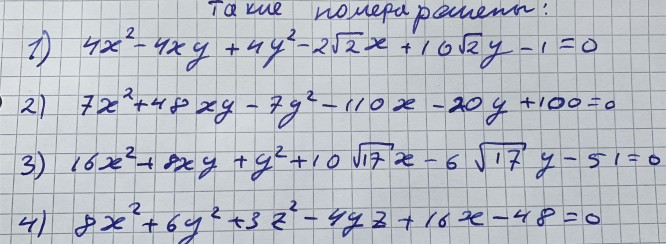 такие номера решены:
1) 4x² - 4xy + 4y² - 2√2x + 10√2y - 1 = 0
2) 7x² + 48xy - 7y² - 110x - 20y + 100 = 0
3) 16x² + 8xy + y² + 10√17x - 6√17y - 51 = 0
4) 8x² + 6y² + 3z² - 4yz + 16x - 48 = 0